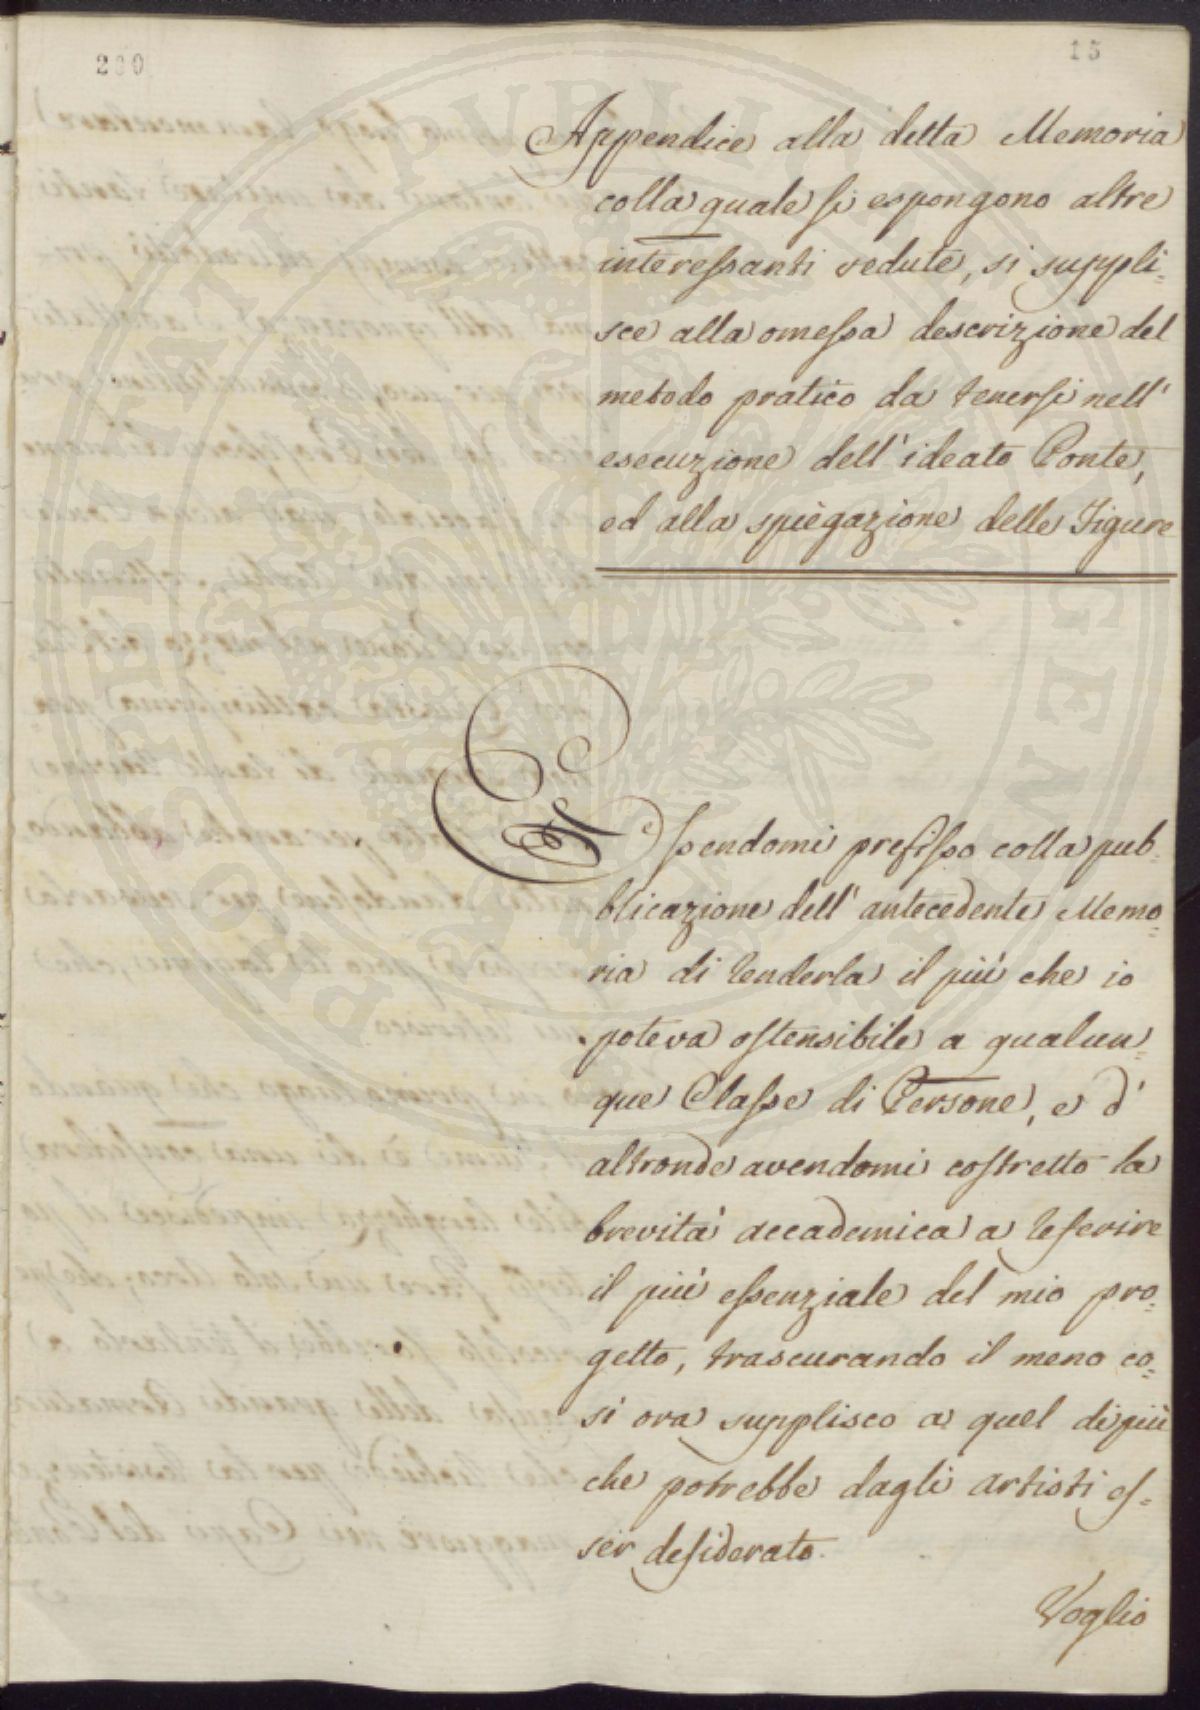 200
15
Appendice alla detta Memoria
colla quale si espongono altre
interessanti vedute, si suppli=
sce alla omessa descrizione del
metodo pratico da tenersi nell'
esecuzione dell'ideato Ponte,
ed alla spiegazione delle Figure
Essendomi prefisso colla pub=
blicazione dell'antecedente Memo=
ria di renderla il più che io
poteva ostensibile a qualun=
que Classe di Persone, e d'
altronde avendomi costretto la
brevità accademica a riferire
il più essenziale del mio pro=
getto, trascurando il meno co=
sì ora supplisco a quel di più
che potrebbe dagli artisti es=
ser desiderato.
Voglio
PROSPERITATI PUBLICAE AUGENDAE